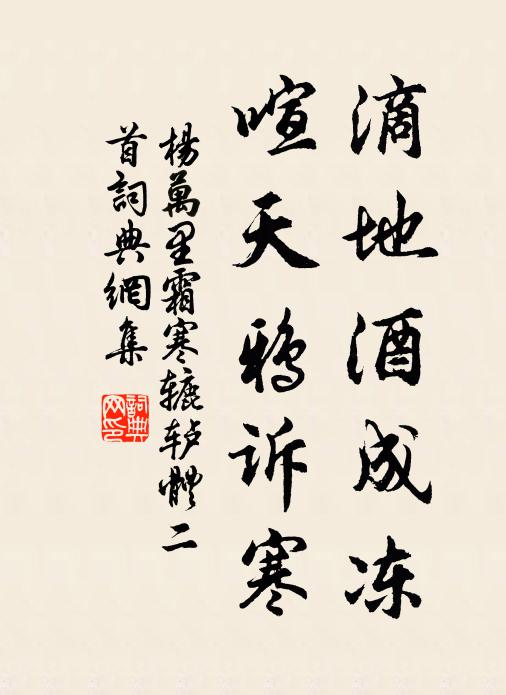 滴地酒成冻
喧天鸦诉寒
楊萬里霜寒辘轳體二
首詞典網集
詞典
网印